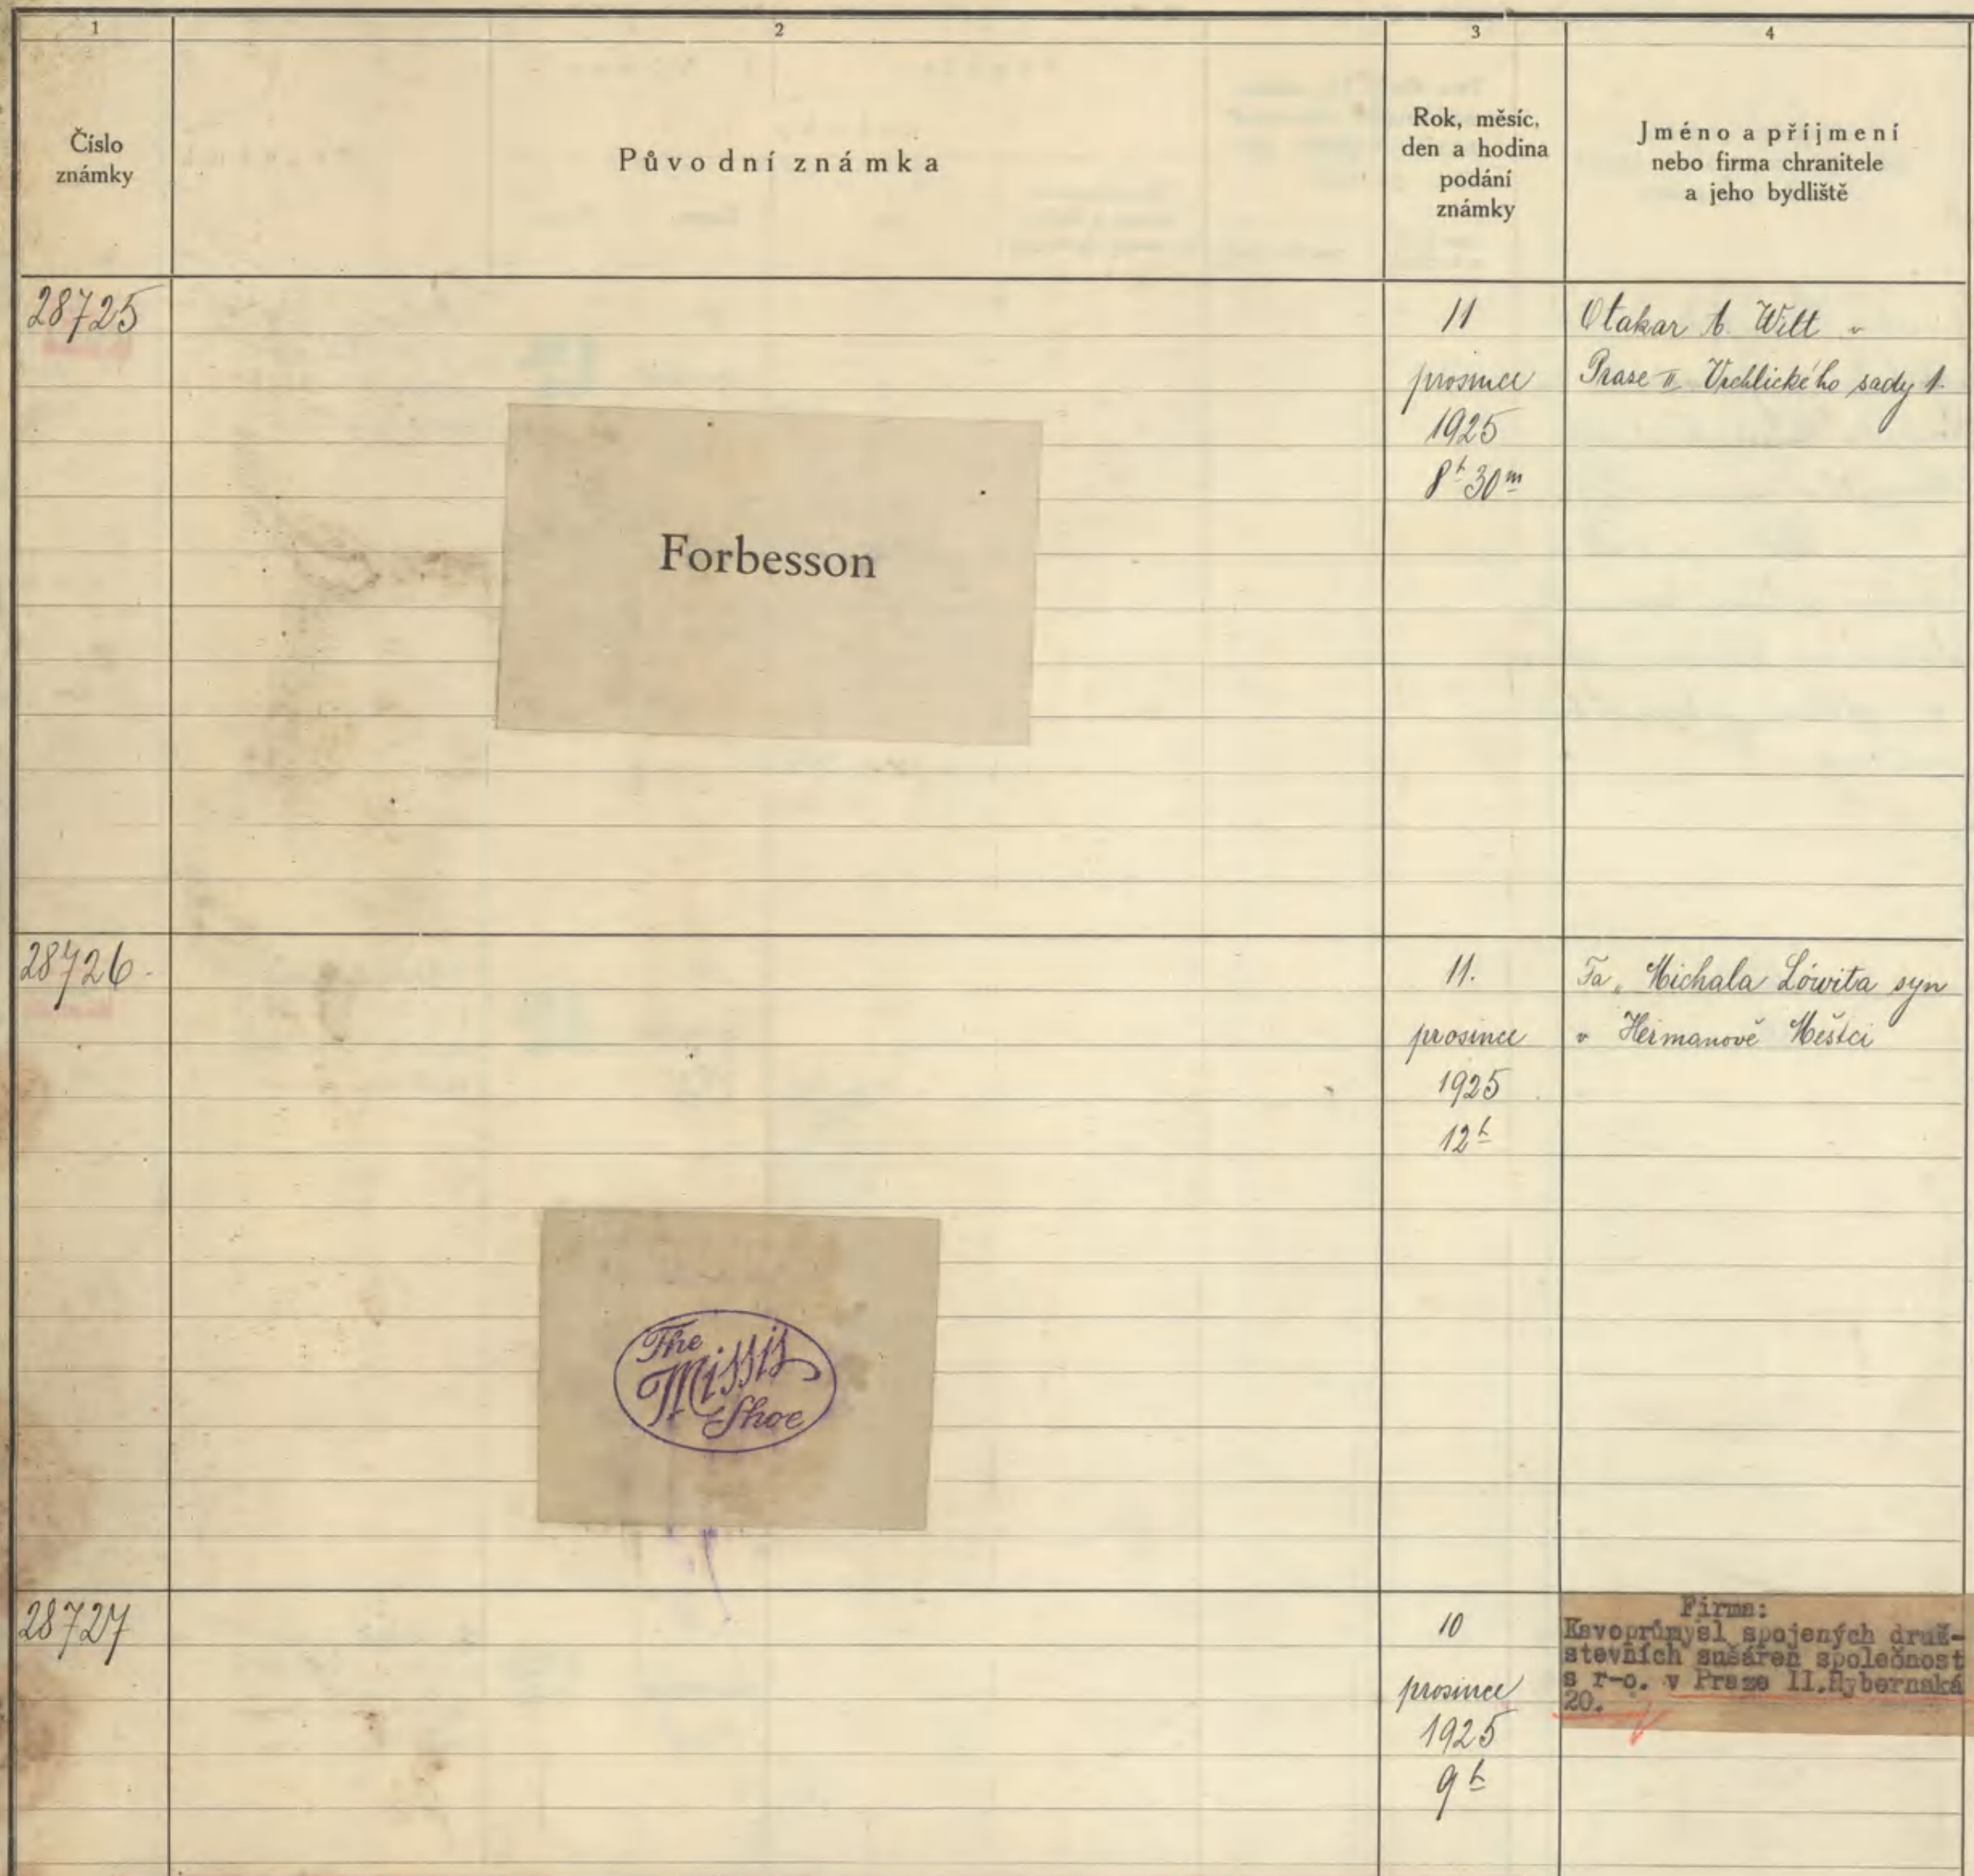 1
2
3
4
Číslo
známky
Původní známka
Rok, měsíc,
den a hodina
podání
známky
Jméno a příjmení
nebo firma chranitele
a jeho bydliště
28725
11
prosince
1925
8h 30m
Otakar A. Witt v
Praze II Vrchlického sady 1.
Forbesson
28726.
11.
prosince
1925
12h
Fa „Michala Löwita syn
v Heřmanově Městci
The
Missis
Shoe
28727
10
prosince
1925
9h
Firma:
Kavoprůmysl spojených druž-
stevních sušáren společnost
s r-o. v Praze II.Hybernská
20.